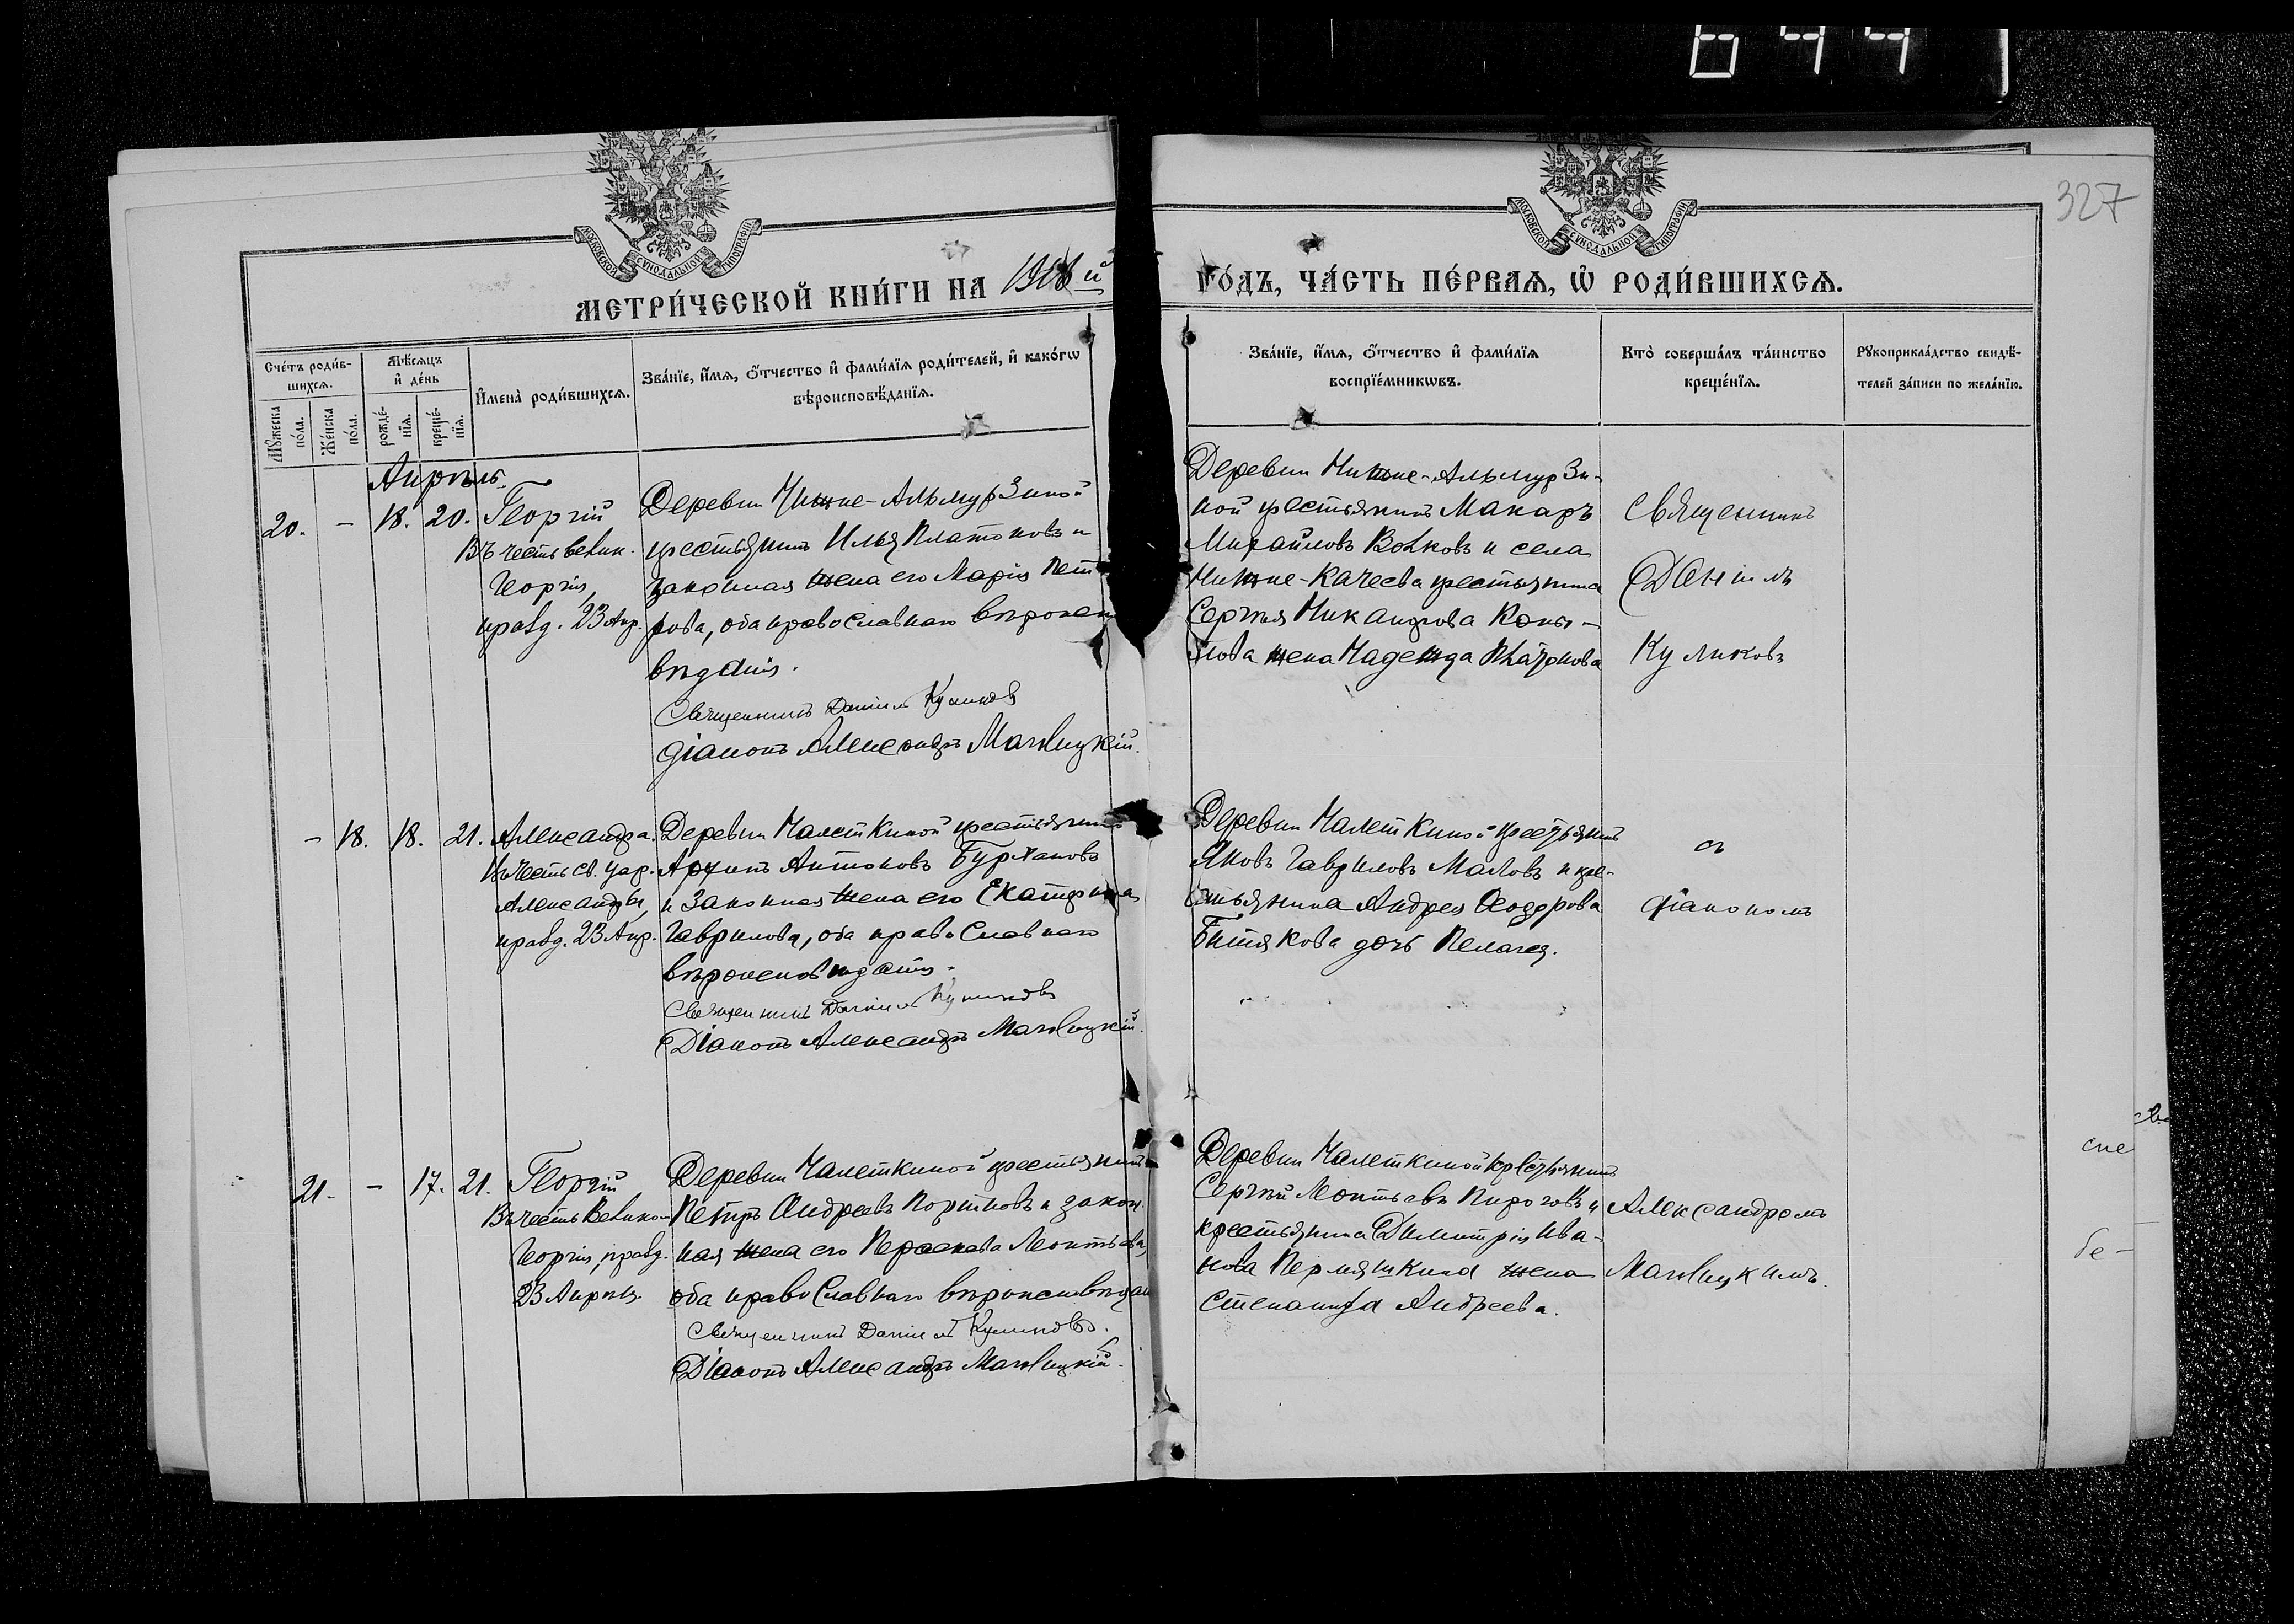 644
327
МОСКОВСКОЙ СѴНОДАЛЬНОЙ ТИПОГРАФІИ
МОСКОВСКОЙ СѴНОДАЛЬНОЙ ТИПОГРАФІИ
МЕТРИ́ЧЕСКОЙ КНИ́ГИ НА
ГО́ДЪ, ЧА́СТЬ ПЕ́РВАѦ, Ѡ҆ РОДИ́ВШИХСѦ.
Сче́тъ роди́в-
шихсѧ.
Мѣ́сѧцъ
и҆ де́нь
И҆мена̀ роди́вшихсѧ.
Зва́нїе, и҆́мѧ, ѻ҆́тчество и҆ фами́лїѧ роди́телей, и҆ како́гѡ
вѣроисповѣ́данїѧ.
Мꙋ́жеска
по́ла.
Же́нска
по́ла.
рожде́-
нїѧ.
креще́-
нїѧ.
Зва́нїе, и҆́мѧ, ѻ҆́тчество и҆ фами́лїѧ
воспрїе́мникѡвъ.
Кто̀ соверша́лъ та́инство
креще́нїѧ.
Рꙋкоприкла́дство свидѣ́-
телей за́писи по жела́нїю.
Апрѣль.
20. - 18. 20. Георгій
Въ честь велик.
Георгія,
празд. 23 Апр.
Деревни Нижне-Альмурзиной
крестьянинъ Илья Платоновъ и
законная жена его Марія Пет
рова, оба православнаго вѣроиспо
вѣданія.
Священникъ Даніилъ Куликовъ
Діаконъ Александръ
Деревни Нижне-Альмурзи-
ной крестьянинъ Макаръ
Михайловъ Волковъ и села
Нижне-Качеева крестьянина
Сергѣя Никандрова Копы-
лова жена Надежда Платонова
Священникъ
Даніилъ
Куликовъ
- 18. 18. 21. Александра.
Въ честь св. цар.
Александры,
празд. 23 Апр.
Деревни крестьянинъ
Антоновъ
и законная жена его Екатерина
Гаврилова, оба православнаго
вѣроисповѣданія.
Священникъ Даніилъ Куликовъ
Діаконъ Александръ
Деревни крестьянинъ
Яковъ Гавриловъ Маловъ и кре-
стьянина Андрея Ѳеодорова
Битякова дочь Пелагея.
съ
діакономъ
21. - 17. 21. Георгій
Въ честь Велико
Георгія, празд.
23 Апрѣля.
Деревни крестьянинъ
Петръ Андреевъ и закон
ная жена его Параскева Леонтьева,
оба православнаго вѣроисповѣдан
Священникъ Даніилъ Куликовъ.
Діаконъ Александръ
Деревни крестьянинъ
Сергѣй Леонтьевъ Пироговъ и
крестьянина Димитрія Ива-
нова Пермяшкина жена
Степанида Андреева.
Александромъ
спе
бе-